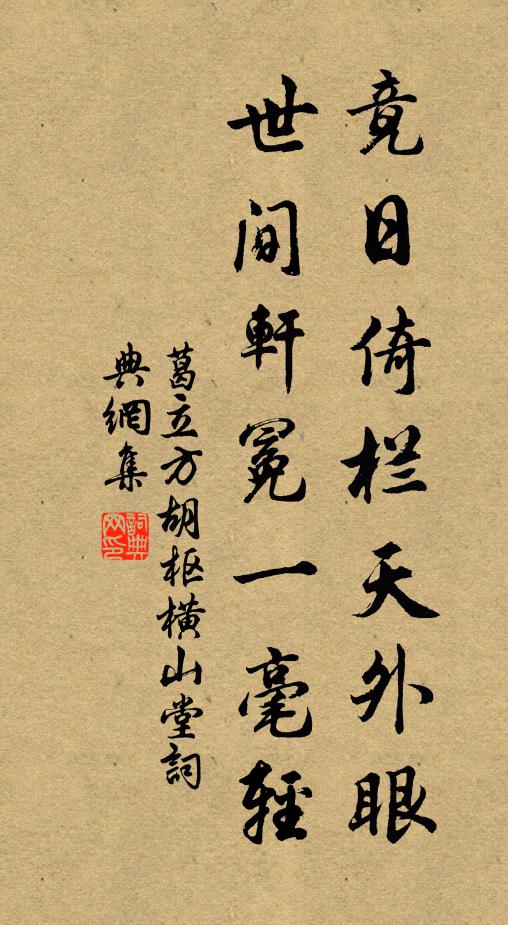 竟日倚栏天外眼
世间軒冕一毫輕
葛立方胡枢横山堂詞
典網集
詞典
网印